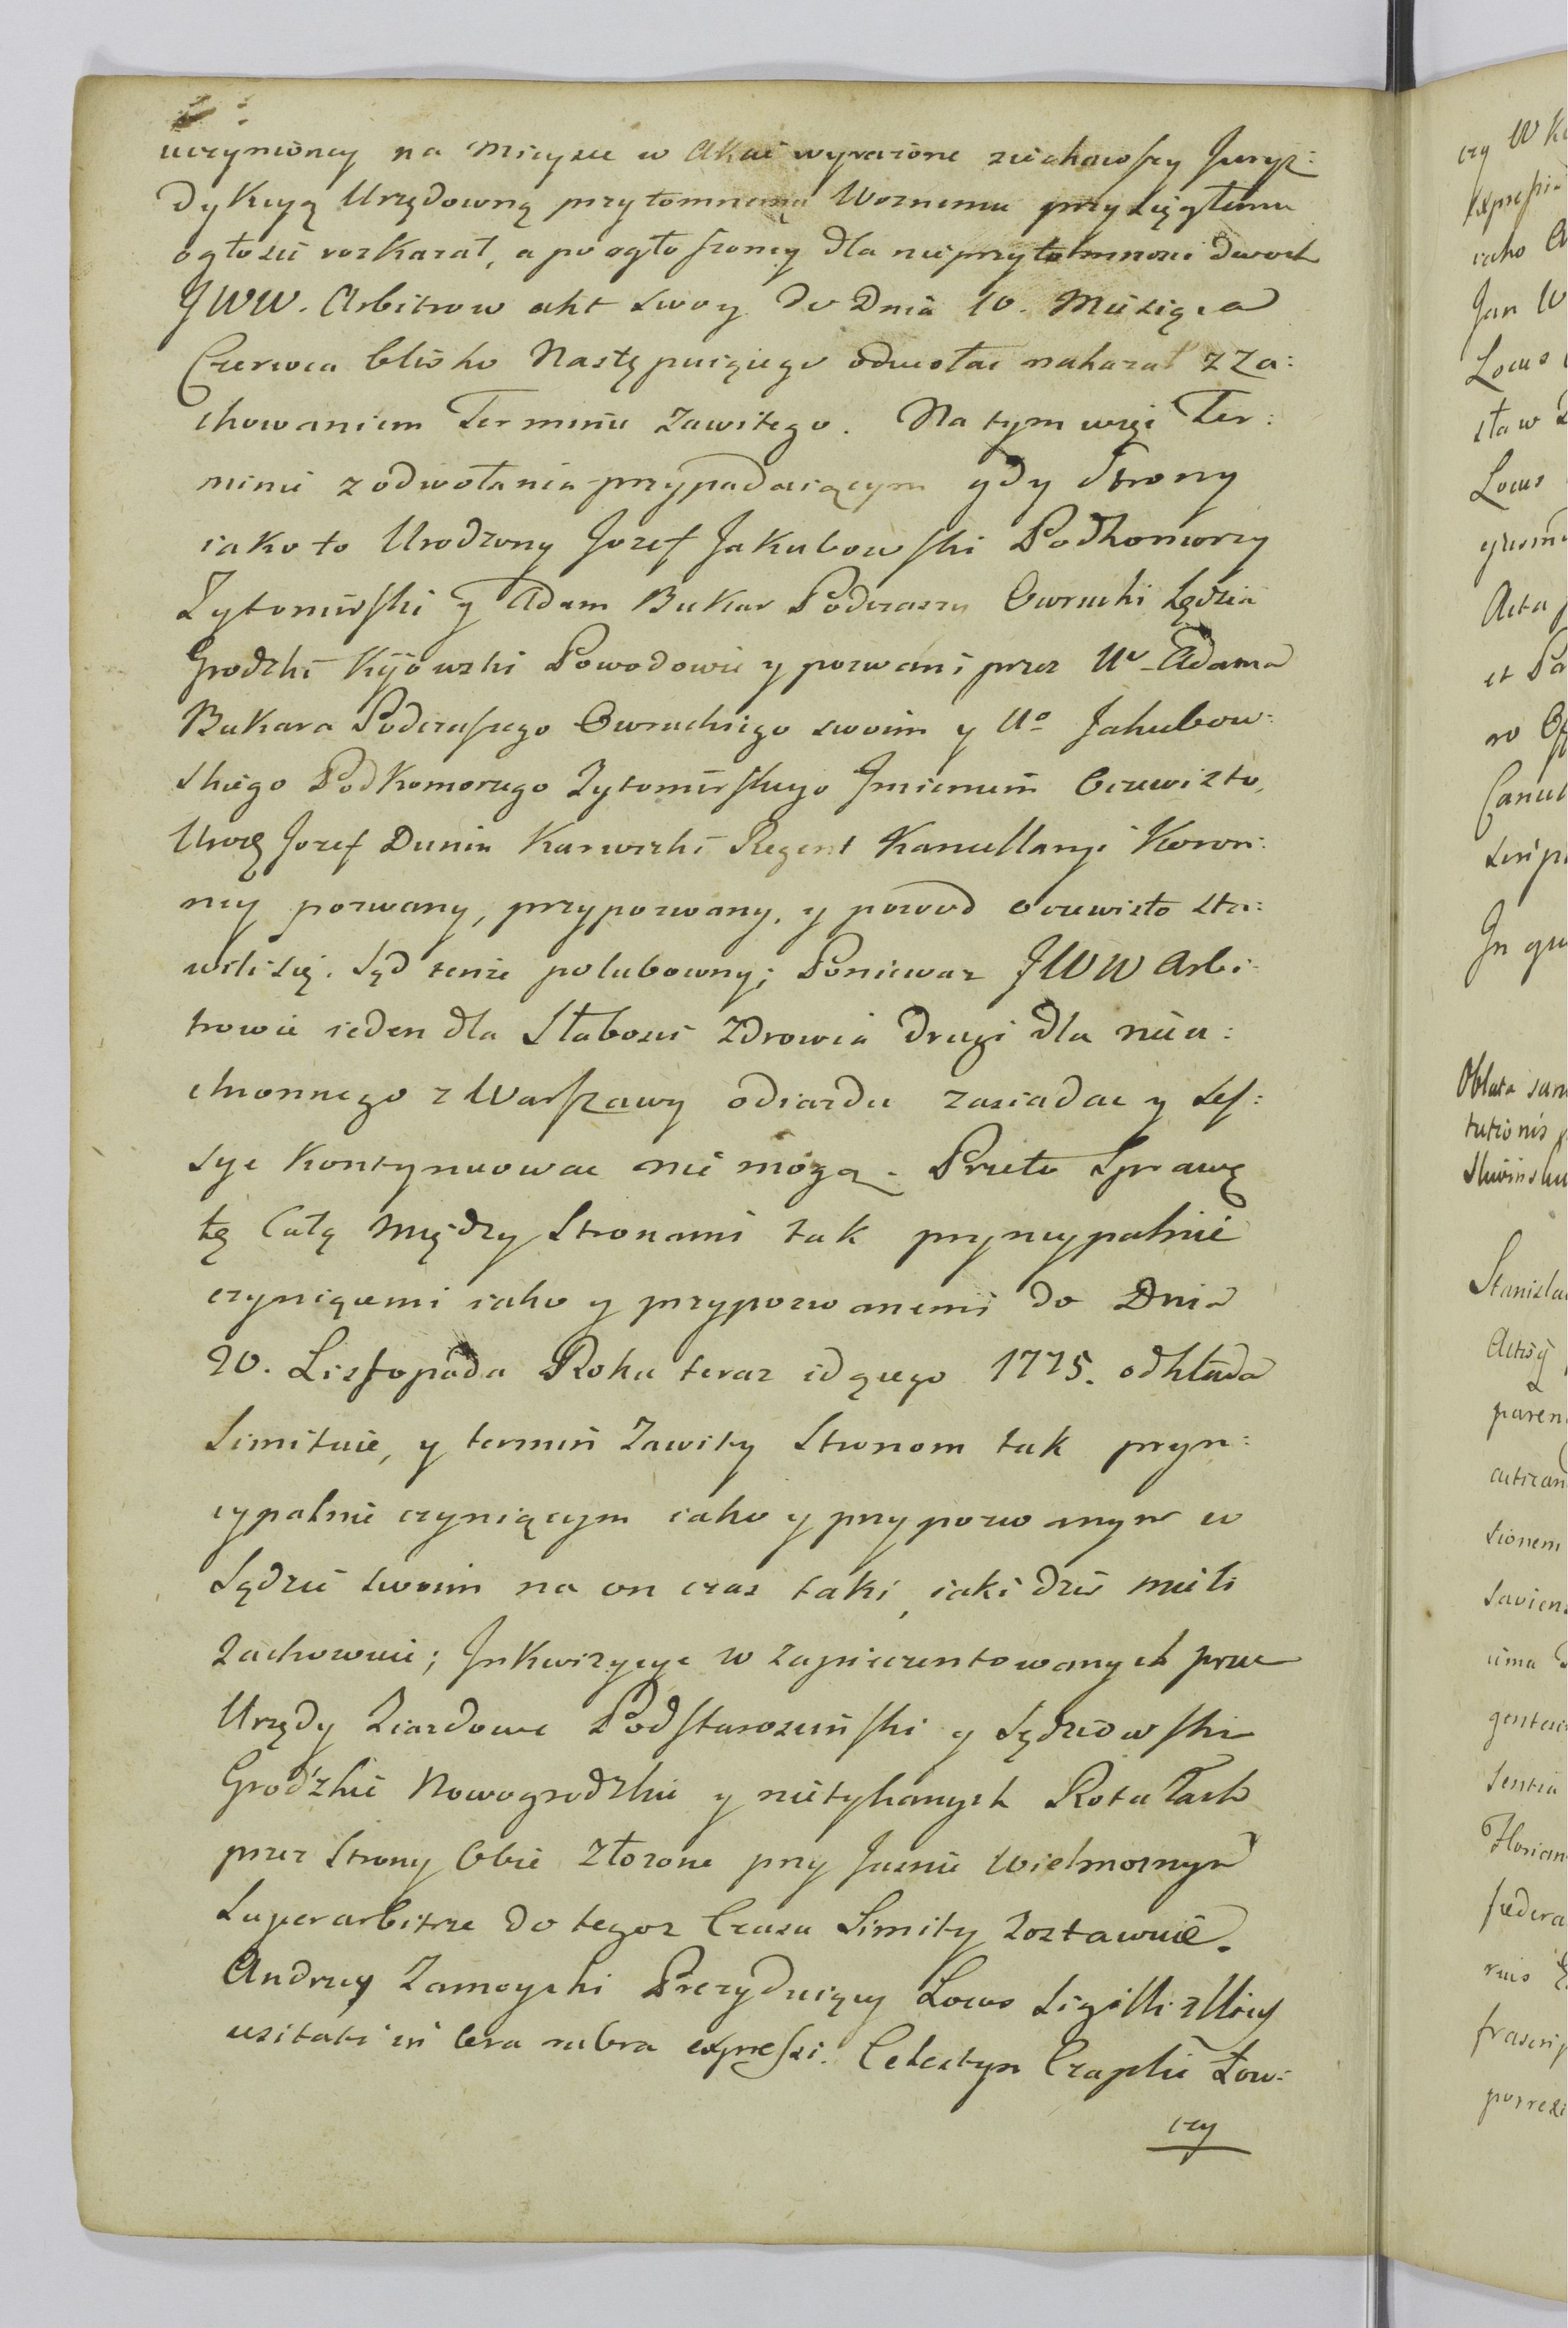 uczynioney na Mieysce w Akcie wyrażone ziechawszy Juryz:
dykcyą Urzędowną przytomnemu Woznemu przysięgłemu
ogłosić roskazał, a po ogłoszoney dla nieprzytomnosci dwoch
JWW. Arbitrow akt swoy do Dnia 10. Miesiąca
Czerwca blisko Następuiącego odwołac nakazał z Za:
chowaniem Terminu Zawitego. Na tym więc Ter:
minie z odwołania przypadaiącym gdy Strony
iako to Urodzony Jozef Jakubowski Podkomorzy
Zytomirski y Adam Bukar Podczaszy Owrucki Sędzia
Grodzki Kijowski Powodowie y pozwani przez Uo Adama
Bukara Podczaszego Owruckiego swoim y Uo Jakubow:
skiego Podkomorzego Zytomirskiego Jmieniem Oczewisto,
Uroę Jozef Dunin Karwicki Regent Kancellaryi Koron:
ney pozwany, przypozwany, y powod oczewisto sta:
wili się. Sąd tenże polubowny; Poniewaz JWW Arbi:
trowie ieden dla Słabosci Zdrowia drugi dla nieu:
chronnego z Warszawy odiazdu zasiadac y Ses:
sye kontynuowac nie mogą. Przeto Sprawę
tę Całą Między Stronami tak pryncypalnie
czyniącemi iako y przypozwanemi do Dnia
20. Listopada Roku teraz idącego 1775. odkłada
Limituie, y termin Zawity Stronom tak pryn:
cypalnie czyniącym iako y przypozwanym w
Sądzie swoim na on czas taki, iaki dziś mieli
Zachowuie; Jnkwizycye w zapieczentowanych przez
Urzędy Ziazdowe Podstarościnski y Sędziowski
Grodzkie Nowogrodzkie y nietykanych Rotułach
przez Strony Obie złozone przy Jasnie Wielmoznym
Superarbitrze do tegoz Czasu Limity Zostawuie.
Andrzey Zamoyski Prezyduiący Locus Sigilli illius
usitati in cera rubra expressi. Celestyn Czaplic Łow:
czy
czy W
iako
Jan W
Locus
sław
Locus
Acta
et
w
In
Oblata
tutionis
Stanisla
paren
tionem
ima